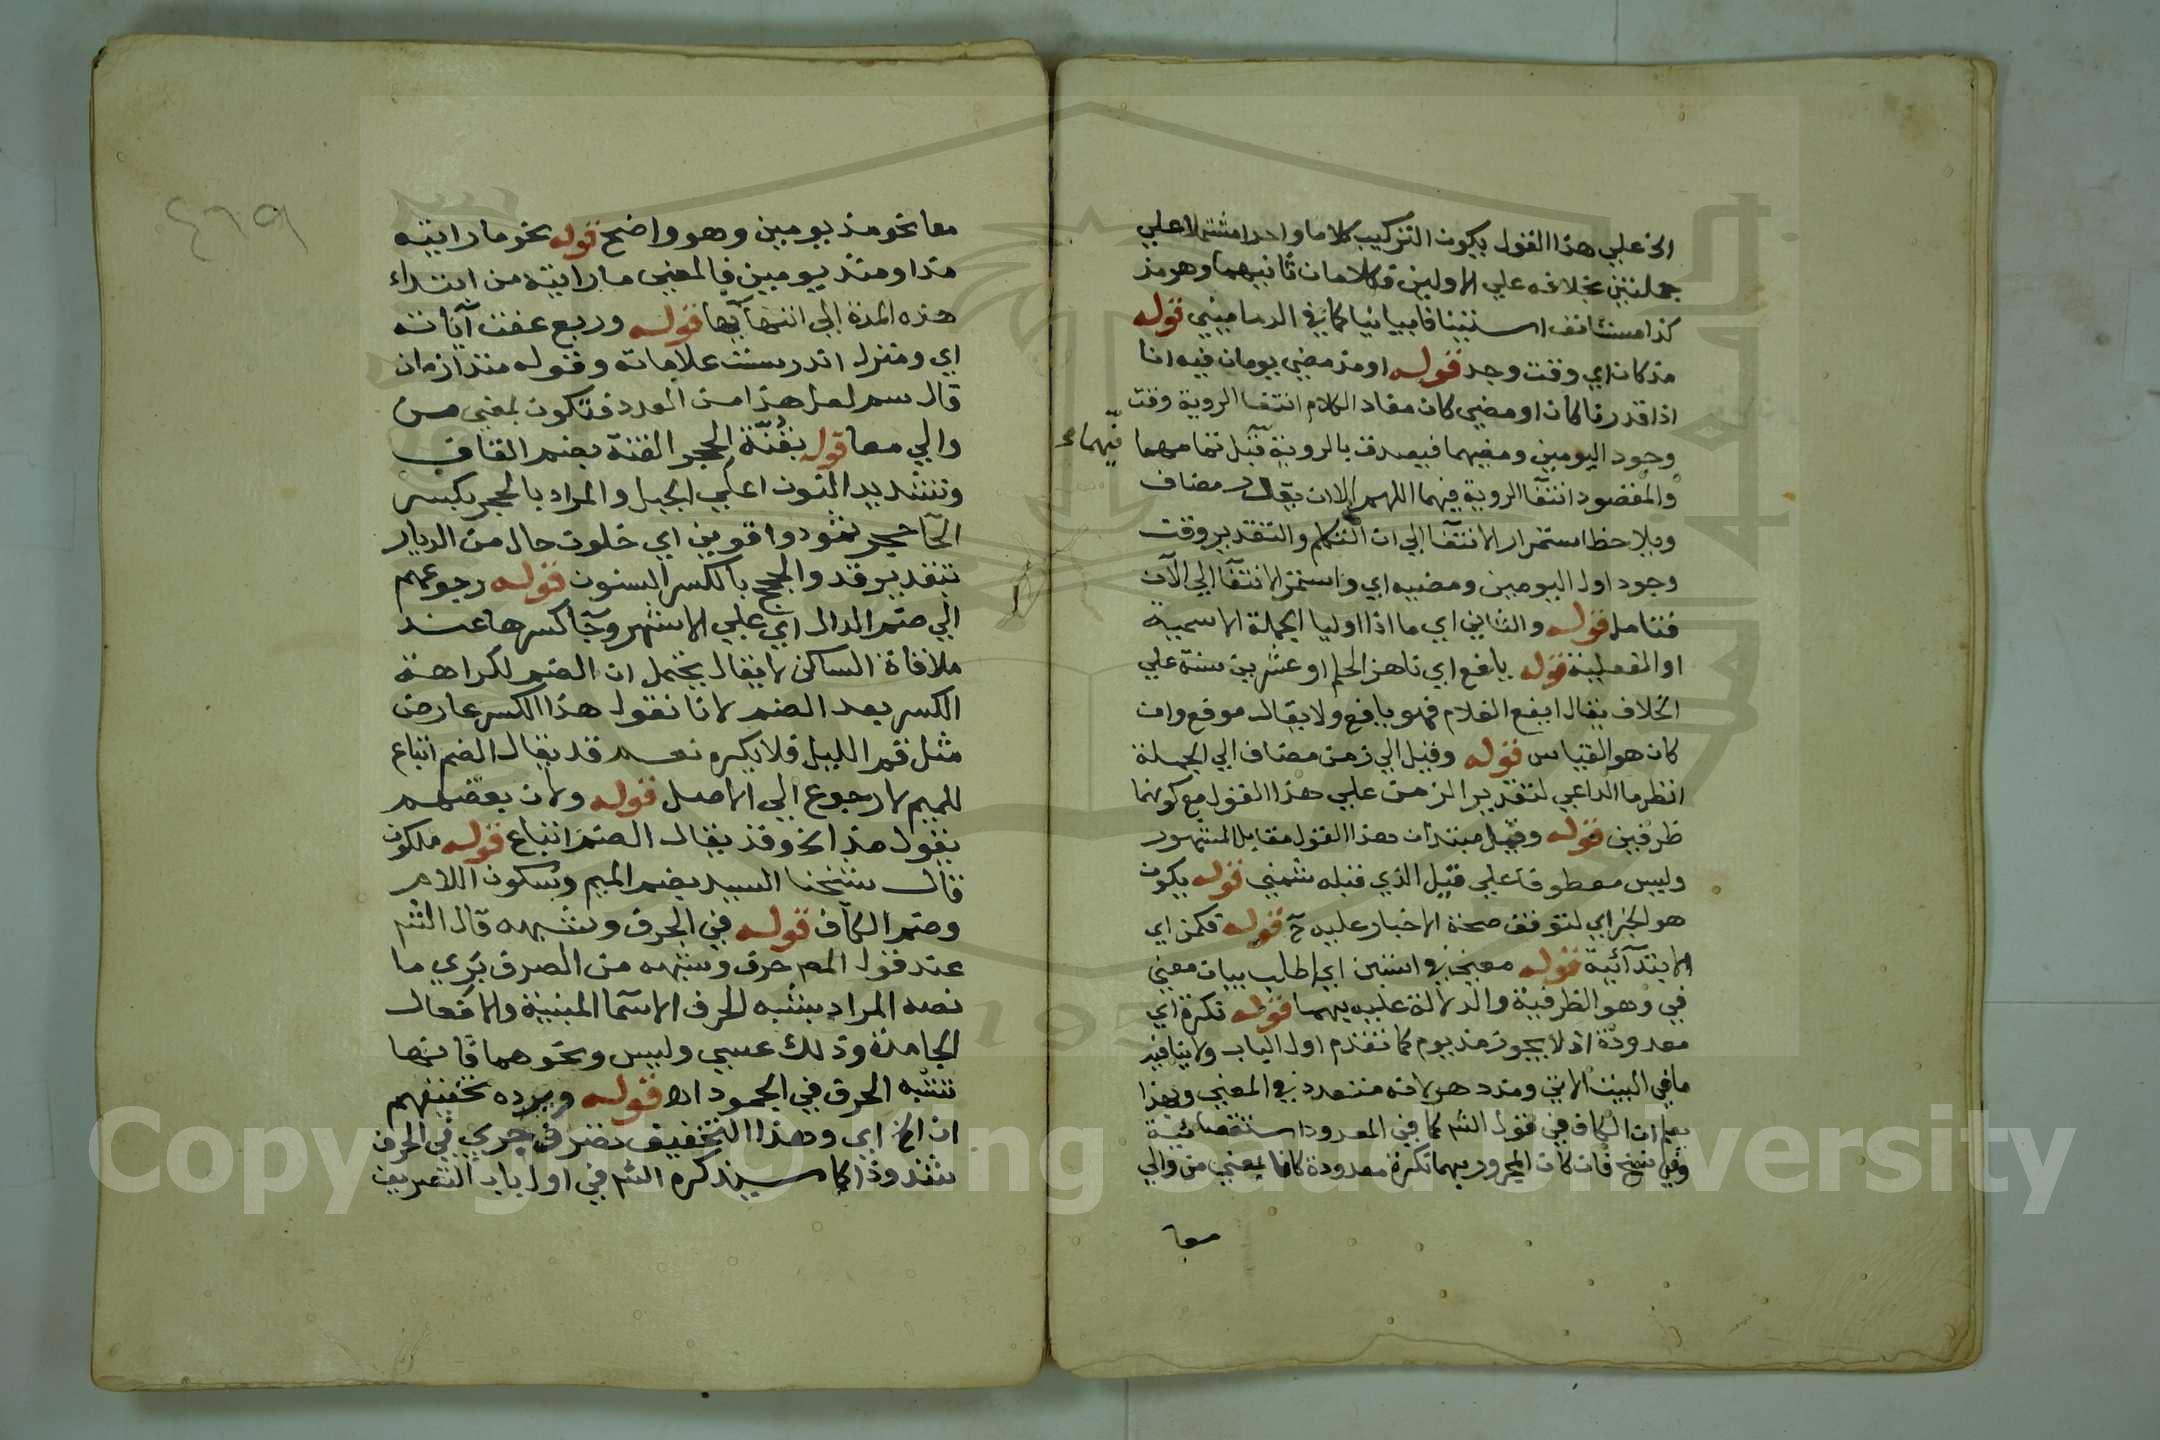 الخ علي هذا القول يكون التركيب كلاما واحدا مشتملا علي
جملتين بخلافه علي الاولين فكلامان ثانيهما وهو مذ
كذا مستانف استئنافا بيانيا كما في الدماميني قوله
مذ كان اي وقت وجد قوله او مذ مضي يومان فيه انا
اذا قدرنا كان او مضي كان مفاد الكلام انتفا الروية وقت
وجود اليومين ومضيهما فيصدق بالروية قبل تمامهما
فيهما
والمقصود انتفا الروية فيهما اللهم الا ان يقدر مضاف
ويلاحظ استمرار الانتفا الي ان التكلم والتقدير وقت
وجود اول اليومين ومضيه اي واستمر الانتفا الي الآن
فتامل قوله والثاني اي ما اذا اوليا الجملة الاسمية
او الفعلية قوله يافع اي ناهز الحلم او عشرين سنة علي
الخلاف يقال ايفع الغلام فهو يافع ولا يقال موفع وان
كان هو القياس قوله وقيل الي زمن مضاف الي الجملة
انظر ما الداعي لتقدير الزمن علي هذا القول مع كونهما
ظرفين قوله وقيل مبتدان هذا القول مقابل المشهور
وليس معطوفا علي قيل الذي قبله شمني قوله يكون
هو الخبر اي لتوقف صحة الاخبار عليه ح قوله فكمن اي
الابتدآئية قوله معني في استبن اي اطلب بيان معني
في وهو الظرفية والدلالة عليه بهما قوله نكرة اي
معدودة اذ لا يجوز مذ يوم كما تقدم اول الباب ولا ينافيه
ما في البيت الاتي ومذ دهر لانه متعدد في المعني وبهذا
يعلم ان الكاف في قول الشم كما في المعدود استقصائية
وفي نسخ فان كان المجرور بهما نكرة معدودة كانا بمعني من والي
معا
٤٦٩
معا نحو مذ يومين وهو واضح قوله نحو ما رايته
مذ او منذ يومين فالمعني ما رايته من ابتداء
هذه المدة الي انتهآيها قوله وربع عفت آياته
اي ومنزل اندرست علاماته وقوله منذ ازمان
قال سم لعل هذا من المعدد فتكون بمعني من
والي معا قوله بقنة الحجر القنة بضم القاف
وتشديد النون اعلي الجبل والمراد بالحجر بكسر
الحآ حجر ثمود واقوين اي خلون حال من الديار
بتقدير قد والحجج بالكسر السنون قوله رجوعهم
الي ضم الدال اي علي الاشهر وجآ كسرها عند
ملاقاة الساكن لا يقال يحتمل ان الضم لكراهة
الكسر بعد الضم لانا نقول هذا الكسر عارض
مثل قم الليل فلا يكره نعم قد يقال الضم اتباع
للميم لا رجوع الي الاصل قوله ولان بعضهم
يقول هذا الخ وقد يقال الضم اتباع قوله ملكون
قال شيخنا السيد بضم الميم وسكون اللام
وضم الكاف قوله في الحرف وشبهه قال الشم
عند قول المص حرف وشبهه من الصرف بري ما
نصه المراد بشبه الحرف الاسما المبنية والافعال
الجامدة وذلك عسي وليس ونحوهما فانها
تشبه الحرف في الجمود اه قوله ويرده تخفيفهم
ان الخ اي وهذا التخفيف تصرف جري في الحرف
شذوذا كما سيذكره الشم في اول باب التصريف